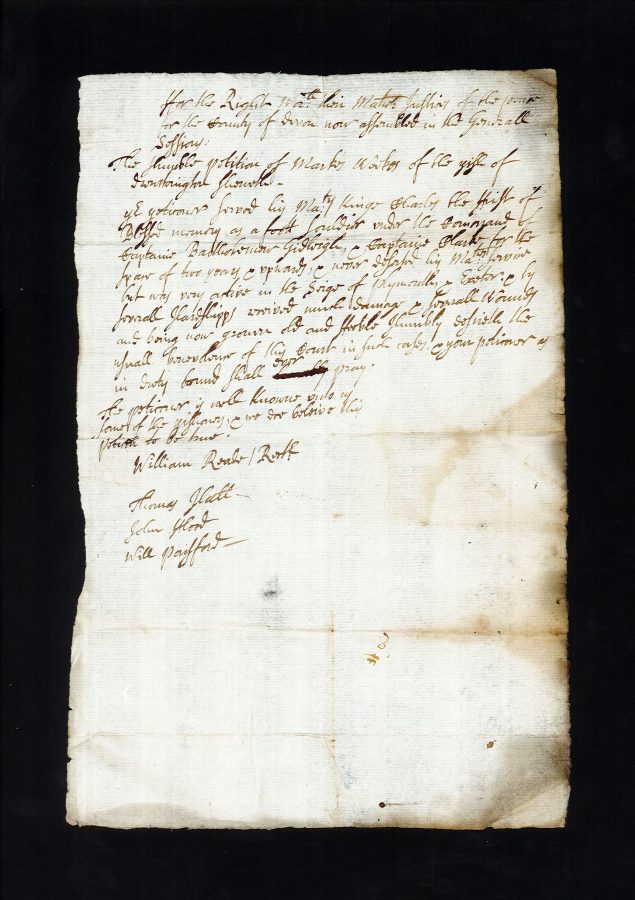 ffor the Right Worll. theire Maties. Justices of the peace
for the County of Devon now assembled in the Generall
Sessions:
The humble petition of Marke Weekes of the pish of
Sheweth =
yr peticoner served his Maty Kinge Charles the ffirst of
Blessed memory as a foott souldier under the Comand of
Captaine Bartholomew Gidleigh, & Captaine Clarke for the
space of two years & upwards, & never deserted his Maties service
but was very active in the Seige of Plymouth, & Exeter: & by
severall Hardshipps received much damage & severall Wounds
and being now growne old and feeble Humbly desireth the
usuall benevolence of this Court in such cases & your peticoner as
in duty bound shall ever pray.
The peticoner is well knowne unto us
some of the pishoners, & we doe beleive this
peticon to be true.
William Reade / Rectr.
Thomas
John Flood
Will Paishford